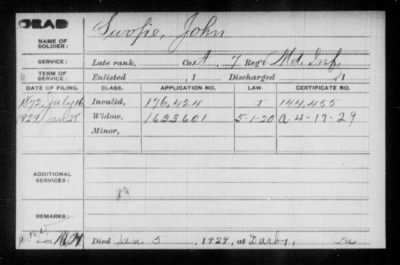 DEAD
NAME OF SOLDIER:
Swopie, John
SERVICE:
Late rank, Co. A, 7 Reg't Md. Inf.
TERM OF SERVICE:
Enlisted , 1 Discharged , 1
DATE OF FILING. CLASS. APPLICATION NO. LAW. CERTIFICATE NO.
1872, July 16 Invalid, 176,424 144,455
1929 Jan 25 Widow, 1633601 5-1-20 A. 4-17-29
Minor,
ADDITIONAL SERVICES:
REMARKS:
Died Jan 5, 1929, at Darby, Pa